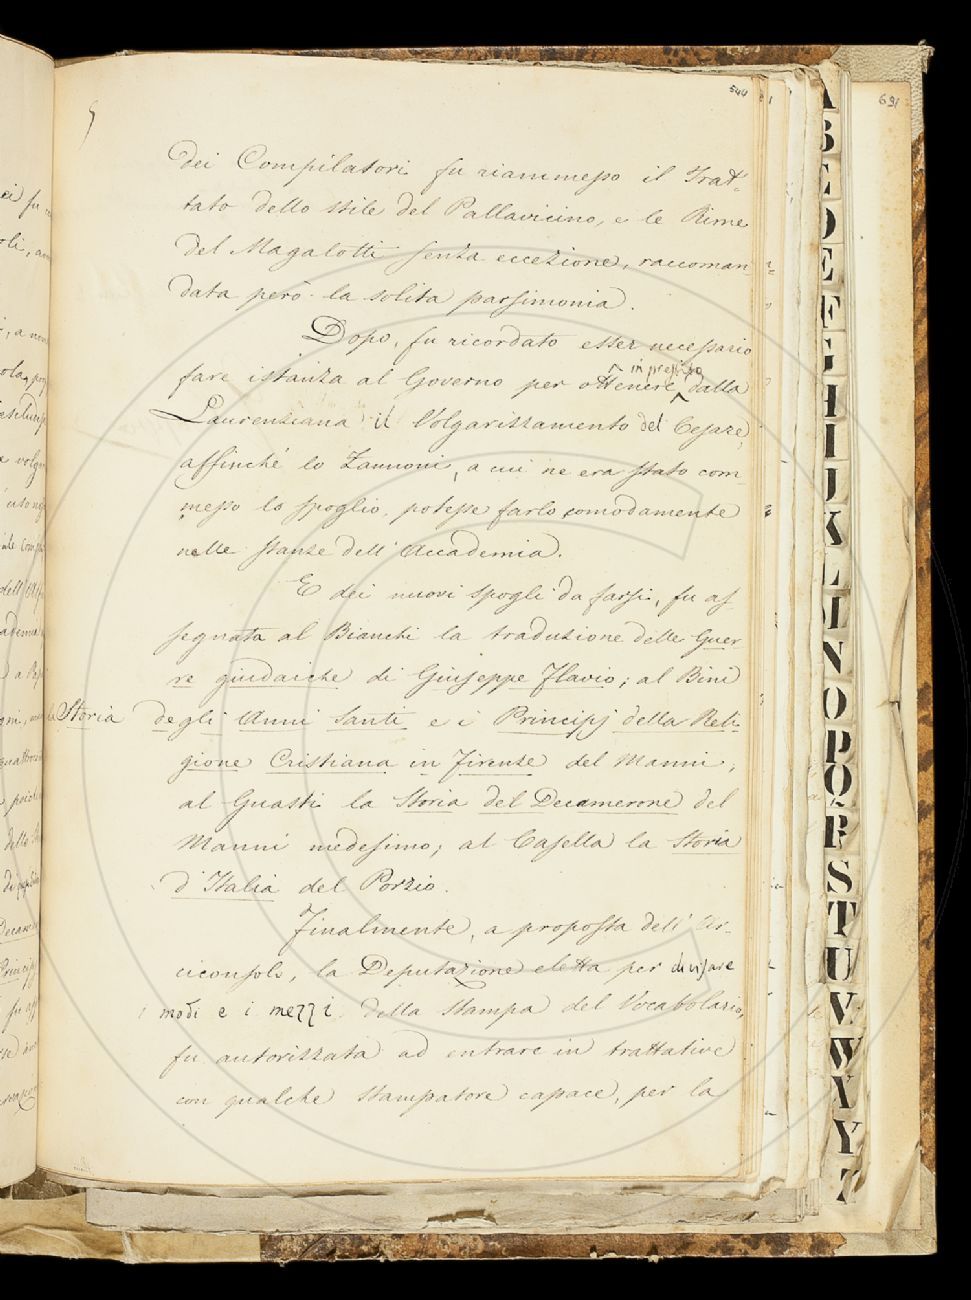 544
691
5
dei Compilatori fu riammesso il Trat-
tato dello stile del Pallavicino, e le Rime
del Magalotti senza eccezione, raccoman-
data però la solita parsimonia.
Dopo, fu ricordato esser necessario
in prestito
fare istanza al Governo per ottenere dalla
Laurenziana il Volgarizzamento del Cesare,
affinché lo Zannoni, a cui ne era stato com-
messo lo spoglio, potesse farlo comodamente
nelle stanze dell'Accademia.
E dei nuovi spogli da farsi, fu as-
segnata al Bianchi la traduzione delle Guer-
re giudaiche di Giuseppe Flavio; al Bini
la Storia degli Anni Santi e i Principj della Reli-
gione Cristiana in Firenze del Manni;
al Guasti la Storia del Decamerone del
Manni medesimo; al Casella la Storia
d'Italia del Porzio.
Finalmente, a proposta dell'Ar-
ciconsolo, la Deputazione eletta per divisare
i modi e i mezzi della Stampa del Vocabolario,
fu autorizzata ad entrare in trattative
con qualche stampatore capace, per la
A
B
C
D
E
F
G
H
I
J
K
L
M
N
O
P
Q
R
S
T
U
V
W
X
Y
Z